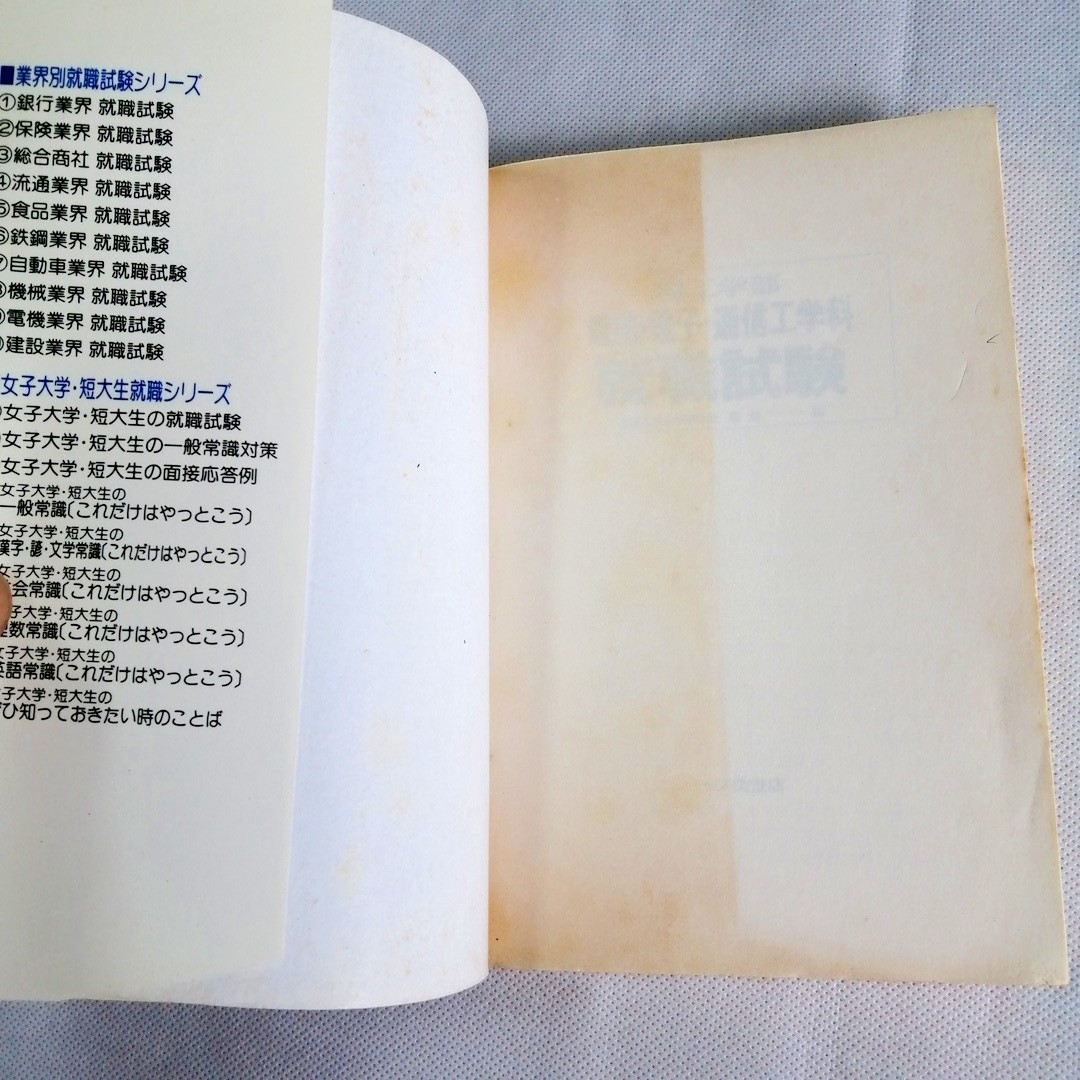 ■業界別就職試験シリーズ
①銀行業界 就職試験
②保険業界 就職試験
③総合商社 就職試験
④流通業界 就職試験
⑤食品業界 就職試験
⑥鉄鋼業界 就職試験
⑦自動車業界 就職試験
⑧機械業界 就職試験
⑨電機業界 就職試験
建設業界 就職試験
女子大学・短大生就職シリーズ
女子大学・短大生の就職試験
女子大学・短大生の一般常識対策
女子大学・短大生の面接応答例
女子大学・短大生の
一般常識〔これだけはやっとこう〕
女子大学・短大生の
漢字・諺・文学常識〔これだけはやっとこう〕
女子大学・短大生の
会常識〔これだけはやっとこう〕
子大学・短大生の
数常識〔これだけはやっとこう〕
女子大学・短大生の
英語常識〔これだけはやっとこう〕
子大学・短大生の
ぜひ知っておきたい時のことば
科学工
試験